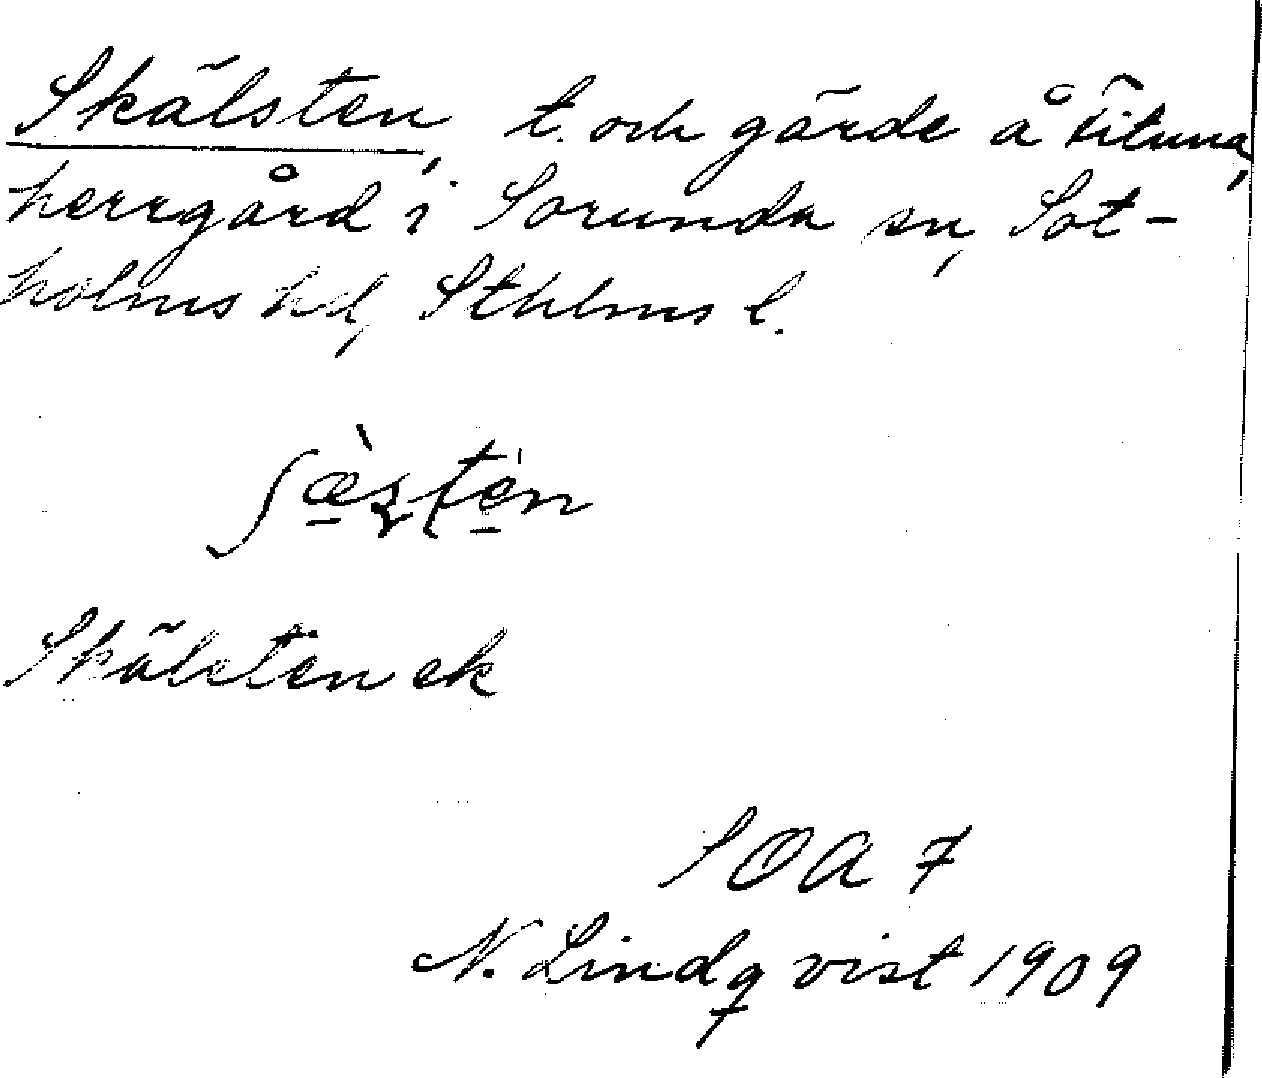 Skälsten, t. och gärde å Fituna
herrgård i Sorunda sn, Sot-
holms hd, Sthlms l.
Skälsten ek
SOA 7
N. Lindqvist 1909